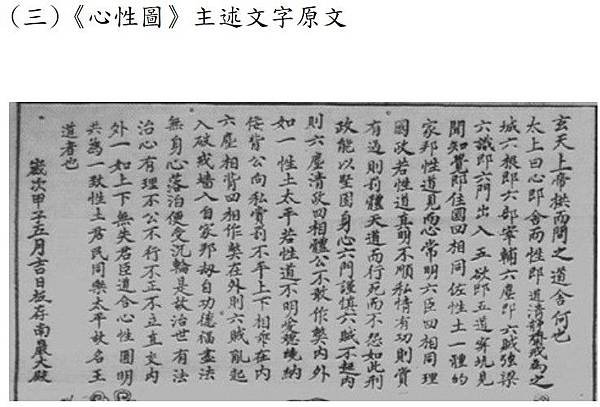 (三)《心性圖》主述文字原文
玄天上帝拱而問之道舍何也
太上曰心即舍而性即道清靜齋戒為之
城六根即六部宰輔六塵即六賊強梁
六識即六門出入五欲即五道穽坑見
聞知覺即住國四相同佐性土一體的
家邦性道見而心常明六臣四相同理
國政若性道真明不順私情有功則賞
有過則刑體天道而行死而不怨如此刑
政能以堅固身心六門謹慎六賊不起內
則六塵清政四相體公不敢作獘內外
如一性土太平若性道不明愛纏繞納
侫背公向私賞刑不平上下相乖在內
六塵相背四相作獘在外則六賊亂起
入破戎墻入自家邦刼自功德福盡法
無身心落泊便受沉輪是故治世有法
治心有理不公不行不正不立直文內
外一如上下無失君臣道合心性圓明
共為一致性土君民同樂太平故名王
道者也
歲次甲子五月吉日板存南嚴大殿